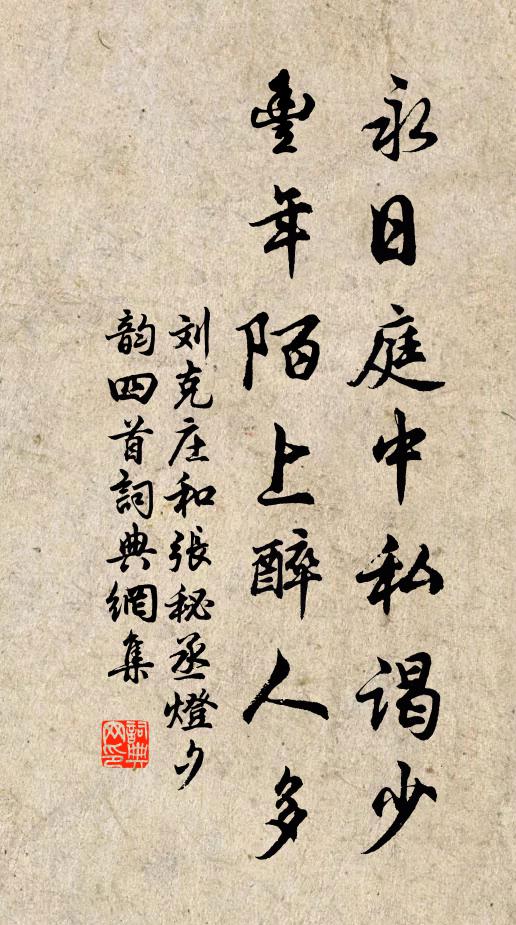 永日庭中私謁少
豐年陌上醉人多
刘克庄和張秘丞燈夕
韵四首詞典網集
詞典
网印